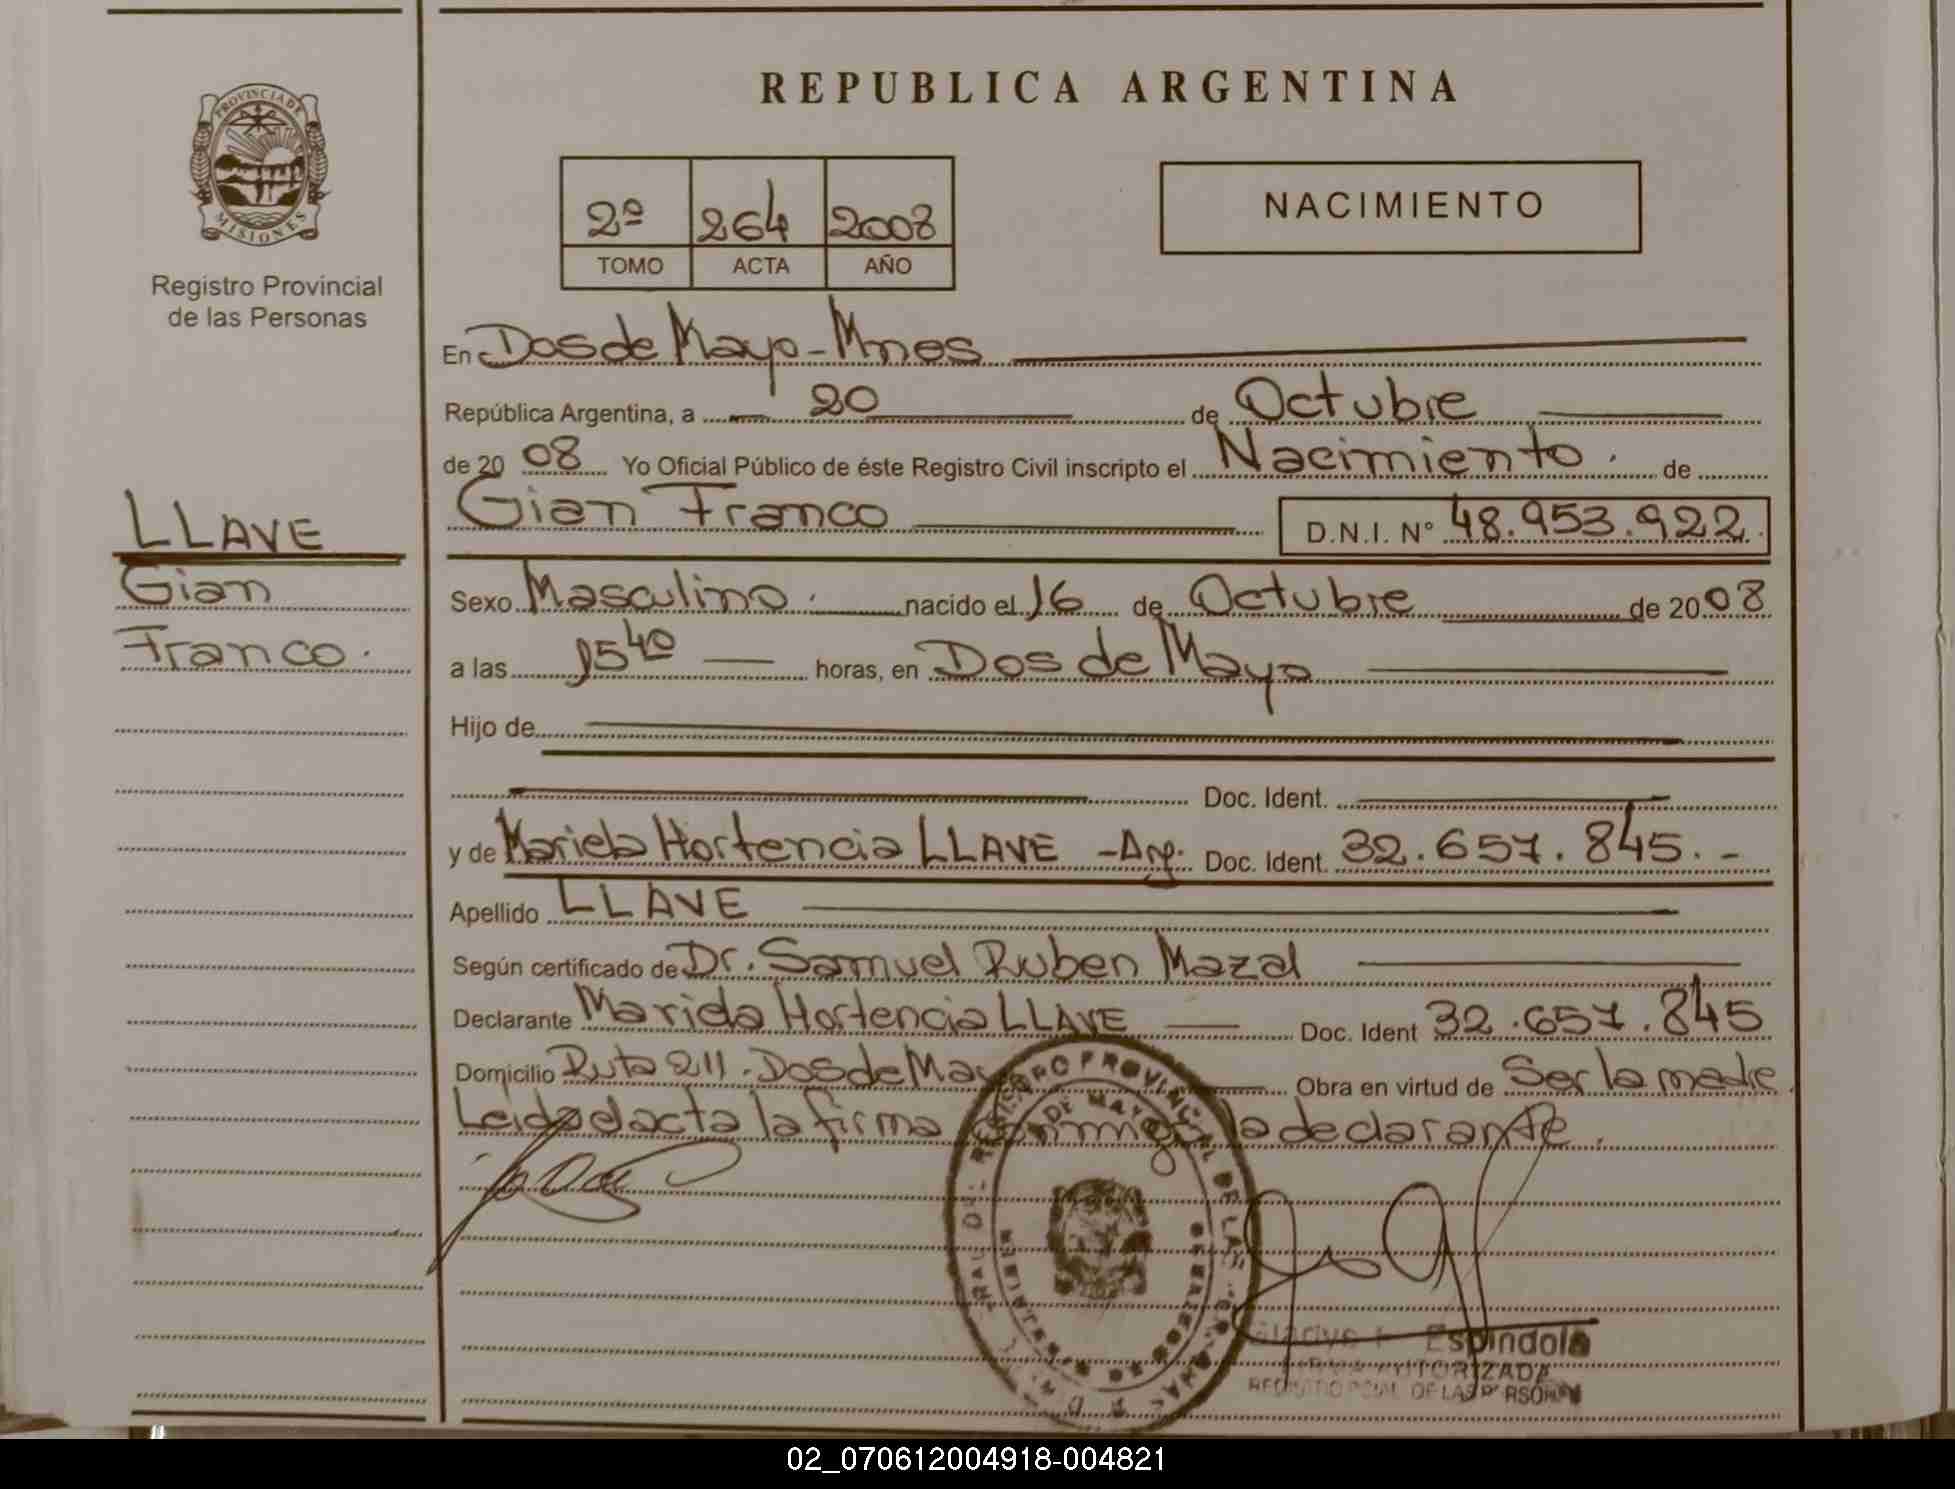 REPUBLICA ARGENTINA
PROVINCIA DE
MISIONES
Registro Provincial
de las Personas
2º 264 2008
TOMO ACTA AÑO
NACIMIENTO
LLAVE
Gian
Franco.
En Dos de Mayo - Mnes
República Argentina, a 20 de Octubre
de 2008 Yo Oficial Público de éste Registro Civil inscripto el Nacimiento. de
Gian Franco D.N.I. Nº 48.953.922.
Sexo Masculino. nacido el 16 de Octubre de 2008
a las 15 40 horas, en Dos de Mayo
Hijo de
Doc. Ident.
y de Mariela Hortencia LLAVE - Arg. Doc. Ident. 32.657.845.-
Apellido LLAVE
Según certificado de Dr. Samuel Ruben Mazal
Declarante Mariela Hortencia LLAVE Doc. Ident 32.657.845
Domicilio Ruta 211. Dos de Mayo Obra en virtud de Ser la madre.
Leida el acta la firma conmigo la declarante.
REGISTRO PROVINCIAL DE LAS
DE MAYO
Espindola
FIRMA AUTORIZADA
REGISTRO PCIAL. DE LAS PERSONAS
02_070612004918-004821